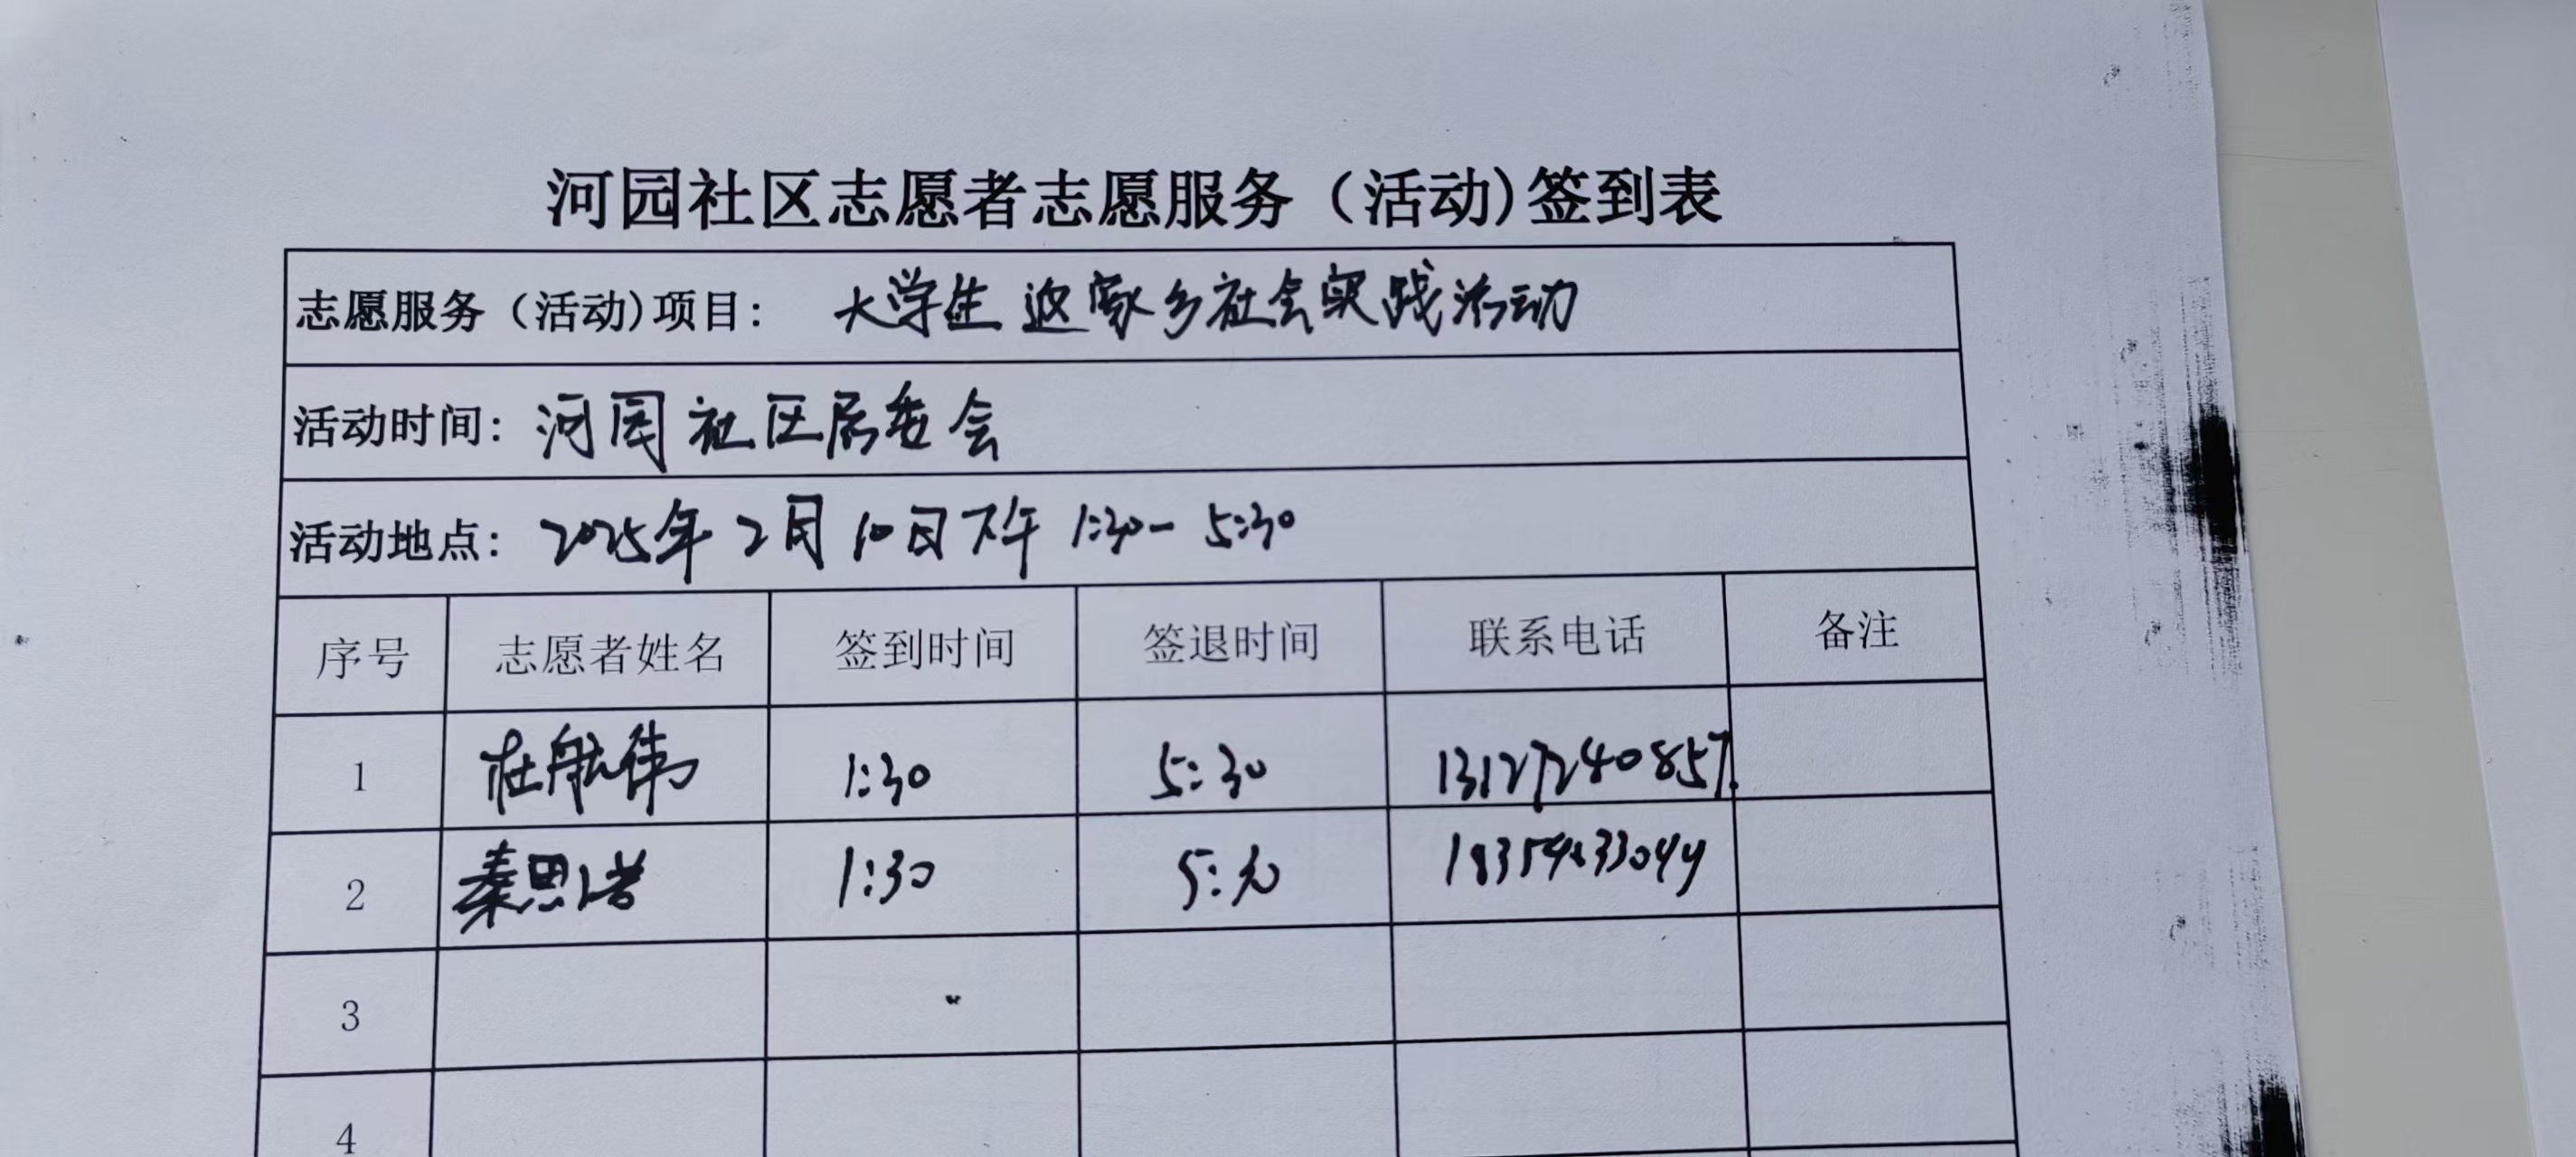 河园社区志愿者志愿服务（活动)签到表
志愿服务（活动)项目： 大学生返家乡社会实践活动
活动时间：河园社区居委会
活动地点：2025年2月10日下午 1:30- 5:30
序号 志愿者姓名 签到时间 签退时间 联系电话 备注
1 杜航伟 1:30 5:30 13127240857
2 秦思诺 1:30 5:30
3
4